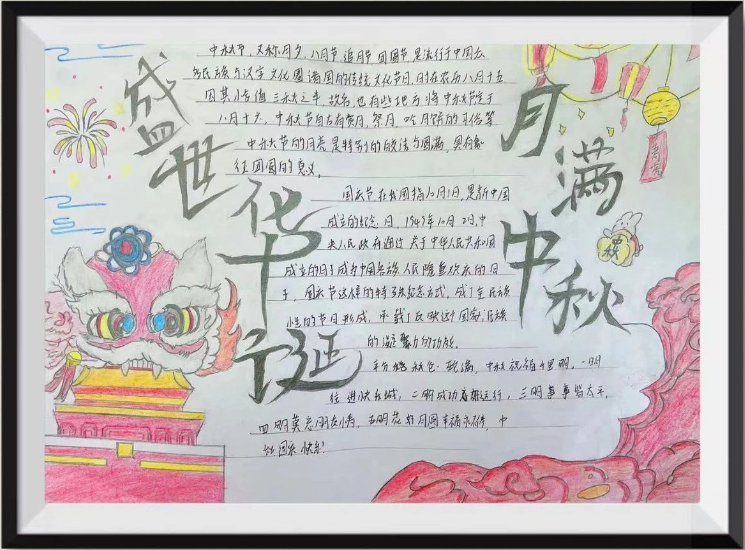 盛世华诞
月满中秋
中秋节，又称月夕，八月节 追月节 团圆节 是流行于中国众
多民族与汉字文化圈诸国的传统文化节日，时在农历八月十五
因其恰值三秋之半，故名，也有些地方将中秋节定于
八月十六。中秋节自古有赏月，祭月，吃月饼的习俗等
中秋节的月亮是特别的皎洁与圆满，具有象
征团圆的意义。
国庆节在我国指10月1日，是新中国
成立的纪念日，1949年10月2日，中
央人民政府通过 关于中华人民共和国
成立的日子成为中国各族人民隆重欢乐的日
子，国庆节这样的特殊纪念方式，成了全民族
性的节日形式，承载了反映这个国家，民族
的凝聚力的功能。
秋色
中秋祝
一明
二明成功
运行，三明喜事皆太平，
四明
五明花好月圆幸福
，中
秋国庆快乐！
中秋